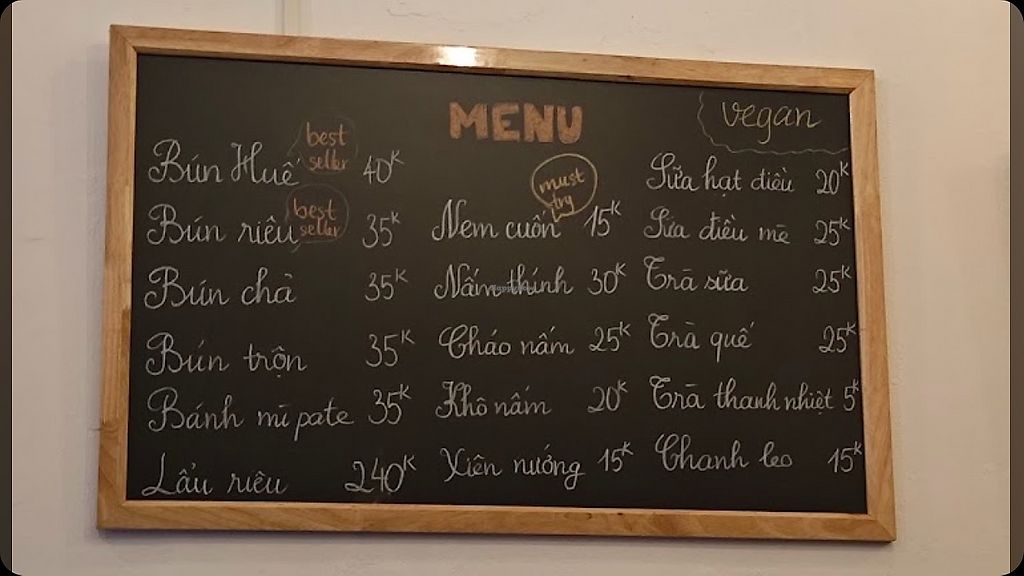 MENU
vegan
Bún Huế best seller 40K
Bún riêu best seller 35K
Bún chả 35K
Bún trộn 35K
Bánh mì pate 35K
Lẩu riêu 240K
must try
Nem cuốn 15K
Nấm thính 30K
Cháo nấm 25K
Khô nấm 20K
Xiên nướng 15K
Sữa hạt điều 20K
Sữa điều mè 25K
Trà sữa 25K
Trà quế 25K
Trà thanh nhiệt 5K
Chanh leo 15K